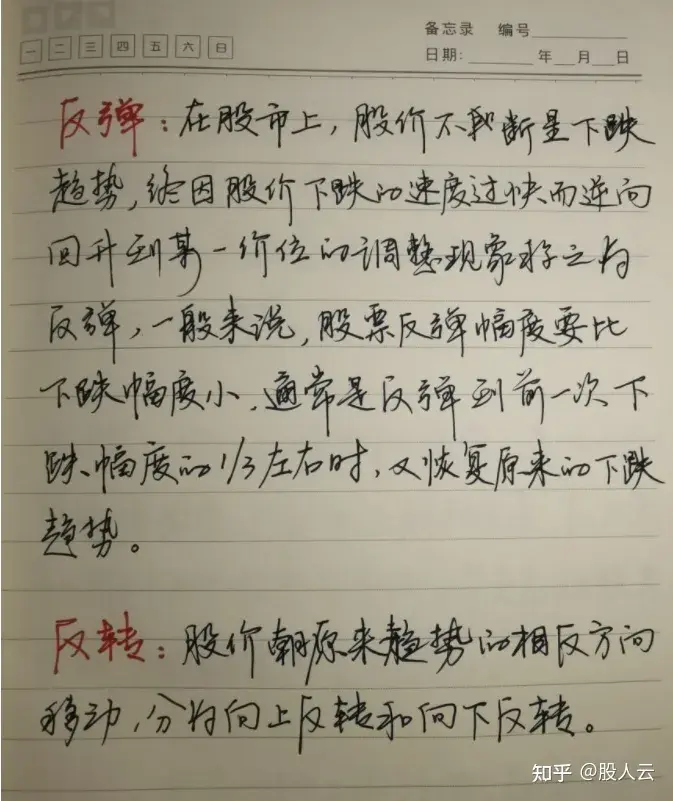 备忘录 编号
一 二 三 四 五 六 日
日期: 年 月 日
反弹:在股市上,股价不断呈下跌
趋势,终因股价下跌的速度过快而逆向
回升到某一价位的调整现象称之为
反弹,一般来说,股票反弹幅度要比
下跌幅度小,通常是反弹到前一次下
跌幅度的1/3左右时,又恢复原来的下跌
趋势。
反转:股价朝原来趋势的相反方向
移动,分为向上反转和向下反转。
知乎 @股人云